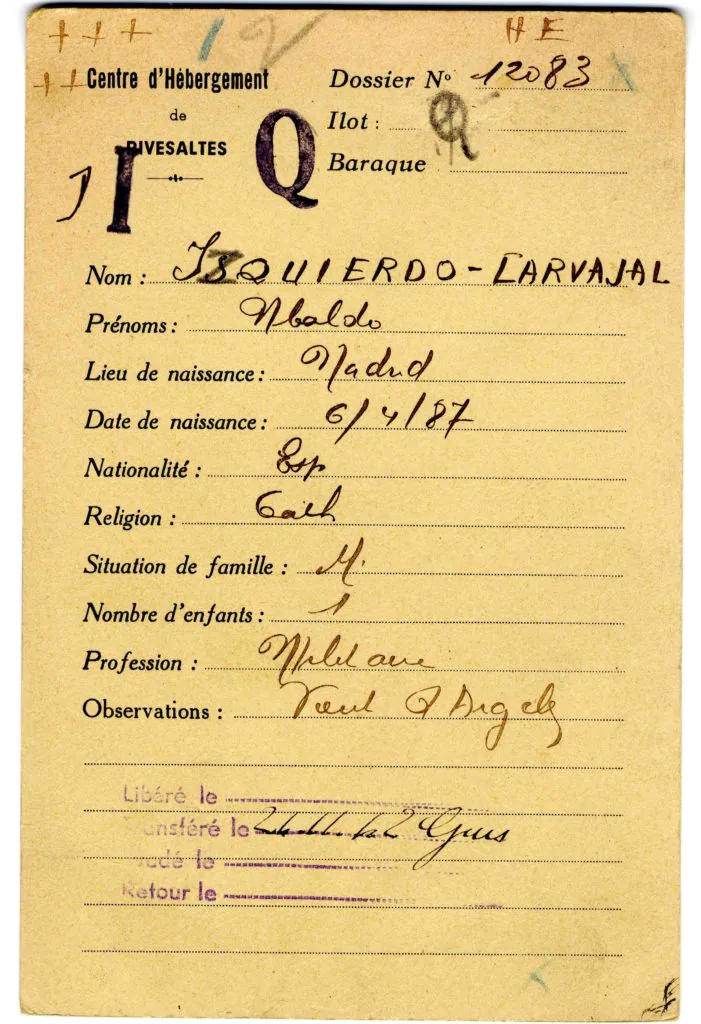 + + +
12
H E
+ + Centre d'Hébergement
de
RIVESALTES
I
Q
Dossier Nº 12083
Ilot : Q
Baraque
Nom : IZQUIERDO-CARVAJAL
Prénoms : Ubaldo
Lieu de naissance : Madrid
Date de naissance : 6/4/87
Nationalité : Esp
Religion : Cath
Situation de famille : M.
Nombre d'enfants : 1
Profession : Militaire
Observations : Vient d'Argelès
Libéré le
Transféré le 24.11.42 Gurs
Évadé le
Retour le